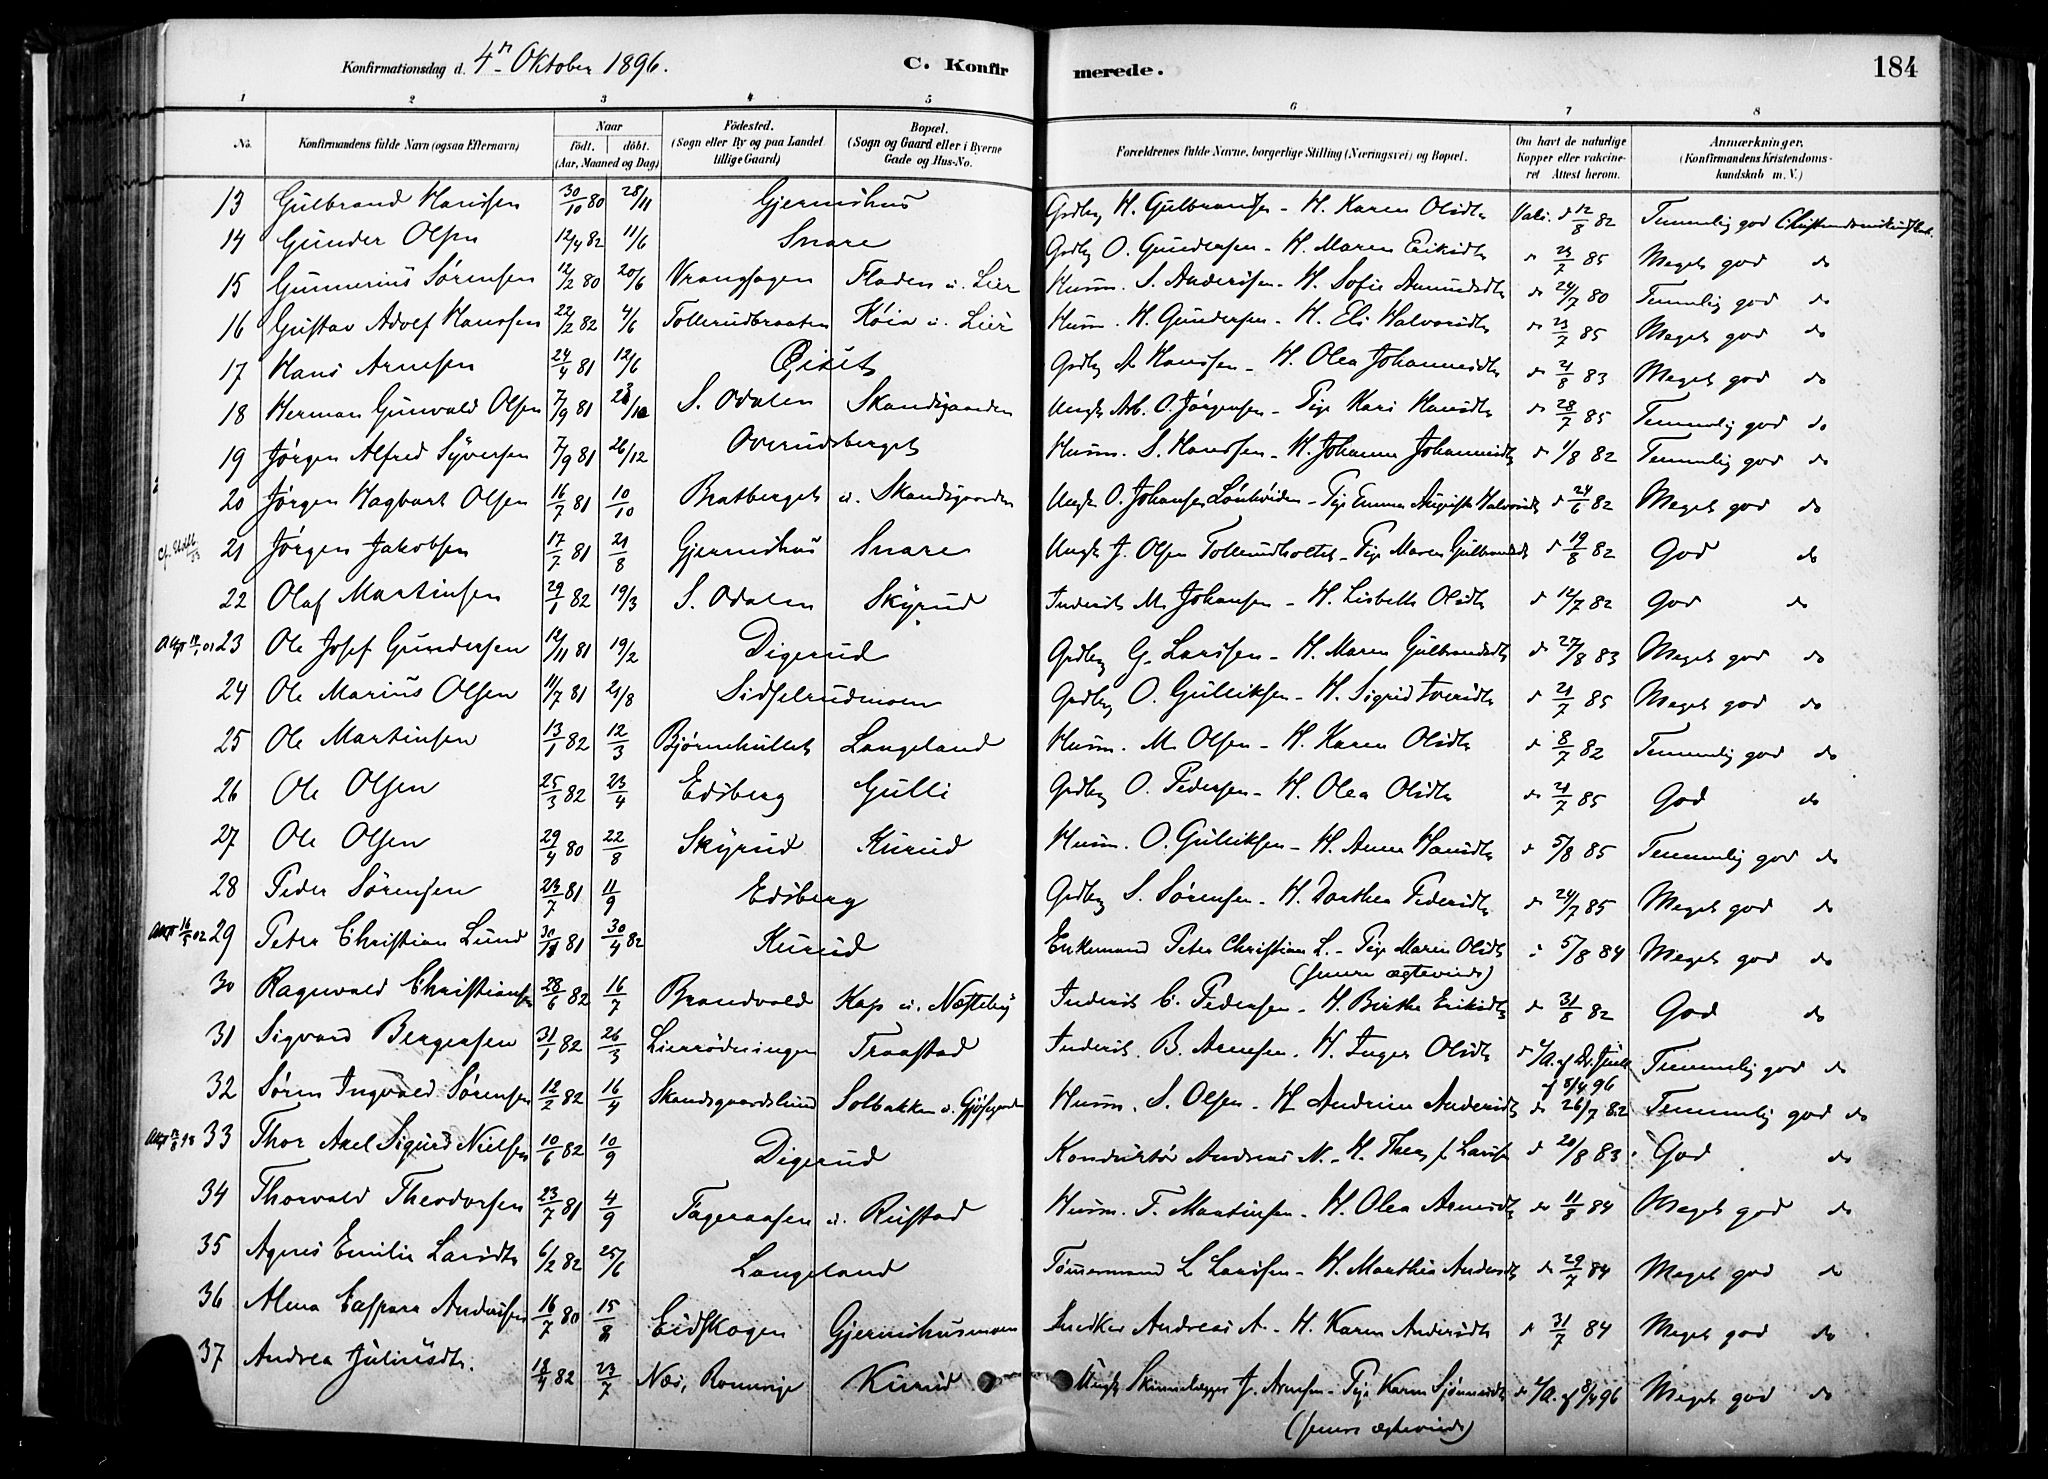 Konfirmationsdag d. 4de Oktober 1896. C. Konfirmerede. 184
1 2 3 4 5 6 7 8
No. Konfirmandens fulde Navn (ogsaa Efternavn) Naar født. døbt. (Aar, Maaned og Dag) Fødested. (Sogn eller By og paa Landet tillige Gaard) Bopæl. (Sogn og Gaard eller i Byerne Gade og Hus-No. Forældrenes fulde Navne, borgerlige Stilling (Næringsvei) og Bopæl. Om havt de naturlige Kopper eller vakcineret Attest herom. Anmærkninger. (Konfirmandens Kristendomskundskab m. V.)
13 Gulbrand Hansen 30/10 80 28/11 Gjermshus Grdbr H. Gulbrandsen - H. Karen Olsdtr Vaks. d 12/8 82 Temmelig god Christendomskundskab
14 Gunder Olsen 12/4 82 11/6 Snare Grdbr O. Gundersen - H. Maren Eriksdtr d 23/7 85 Meget god do
15 Gunnerius Sørensen 12/2 80 20/6 Vranghagen Fladen u. Lier Husm. S. Andersen - H. Sofie Amundsdtr do 24/7 80 Temmelig god do
16 Gustav Adolf Hansen 22/2 82 4/6 Tollerudbraaten Køia u. Lier Husm. H. Gundersen - H. Eli Halvorsdtr do 23/7 85 Meget god do
17 Hans Arnesen 24/4 81 12/6 Gjerdbr A Hansen - H. Olea Johannesdtr do 21/8 83 Meget god do
18 Herman Gunvald Olsen 7/9 81 23/10 S. Odalen Skandsgaarden Ungk. Arb. O. Jørgensen - Pige Kari Hansdtr do 28/7 85 Temmelig god do
19 Jørgen Alfred Syversen 7/9 81 26/12 Overudsberget Husm. S. Hansen - H. Johanne Johannesdtr d 1/8 82 Temmelig god do
20 Jørgen Hagbart Olsen 16/7 81 10/10 Bratberget u. Skandsgaarden Ungk. O. Johansen - Pige Emma Augusta Halvorsdtr d 24/6 82 Meget god do
21 Jørgen Jakobsen 17/7 81 21/8 Gjermshus Snare Ungk J. Olsen Tollerudholtet - Pige Maren Gulbrandsdtr d 19/8 82 God do
22 Olaf Martinsen 29/1 82 19/3 S. Odalen Skyrud Inderst M. Johansen - H. Lisbeth Olsdtr d 14/7 82 God do
23 Ole Josef Gundersen 12/11 81 19/2 Digerud Grdbr G. Larsen - H. Maren Gulbrandsdtr do 27/8 83 Meget god do
24 Ole Marius Olsen 11/7 81 21/8 Sidselrudmoen Grdbr O. Gulliksen - H. Sigrid Iversdtr d 21/7 85 Meget god do
25 Ole Martinsen 13/1 82 12/3 Bjørnehullet Langeland Husm. M. Olsen - H. Karen Olsdtr d 8/7 82 Temmelig god do
26 Ole Olsen 25/3 82 23/4 Edsberg Gulli Grdbr O. Pedersen - H. Olea Olsdtr do 21/7 85 God do
27 Ole Olsen 29/4 80 22/8 Skyrud Kurud Husm. O. Gulliksen - H. Anne Hansdtr d 5/8 85 Temmelig god do
28 Peder Sørensen 23/7 81 11/9 Edsberg Grdbr S. Sørensen - H. Dorthea Pedersdtr d 24/7 85 Meget god do
29 Peter Christian Lund 81 30/4 82 Kurud Enkemand Peter Christian L. - Pige Maren Olsdtr 5/8 84 Meget god do
(senere ægteviede)
30 Ragnvald Christiansen 28/6 82 16/7 Brandvold Kap u. Næsteby Inderst C. Pedersen - H. Birthe Eriksdtr d 31/8 82 God do
31 Sigvard Bergersen 31/1 82 26/3 Lierrødningen Traastad Inderst. B. Arnesen. H. Inger Olsdtr Temmelig god do
8/4 96
32 Søren Ingvald Sørensen 12/2 82 16/4 Skandsgaardslund Solbakken u. Husm. S. Olsen - H Andrine Andersdtr do 26/7 82 Temmelig god do
33 Thor Axel Sigurd Nielsen 10/6 82 10/9 Digerud Konduktør Andreas N. - H. Thea f. Larsen d 20/8 83 God do
34 Thorvald Theodorsen 23/7 81 4/9 Fageraasen u. Rustad Husm. T. Martinsen - H. Olea Arnesdtr do 11/8 84 Meget god do
35 Agnes Emilie Larsdtr 6/2 82 25/6 Langeland Tømmermand L Larsen - H. Marthea Andersdtr do 29/7 84 Meget god do
36 Alma Caspara Andersen 16/7 80 15/8 Eidskogen Gjermshusmoen Snedker Andreas A. - H. Karen Andersdtr d 31/7 84 Meget god do
37 Andrea Juliusdtr. 18/4 82 23/7 Næs, Romerige Kurud Ungk J. Arnesen - Pige Karen d /A. af 8/4 96 Meget god do
(senere ægteviede)